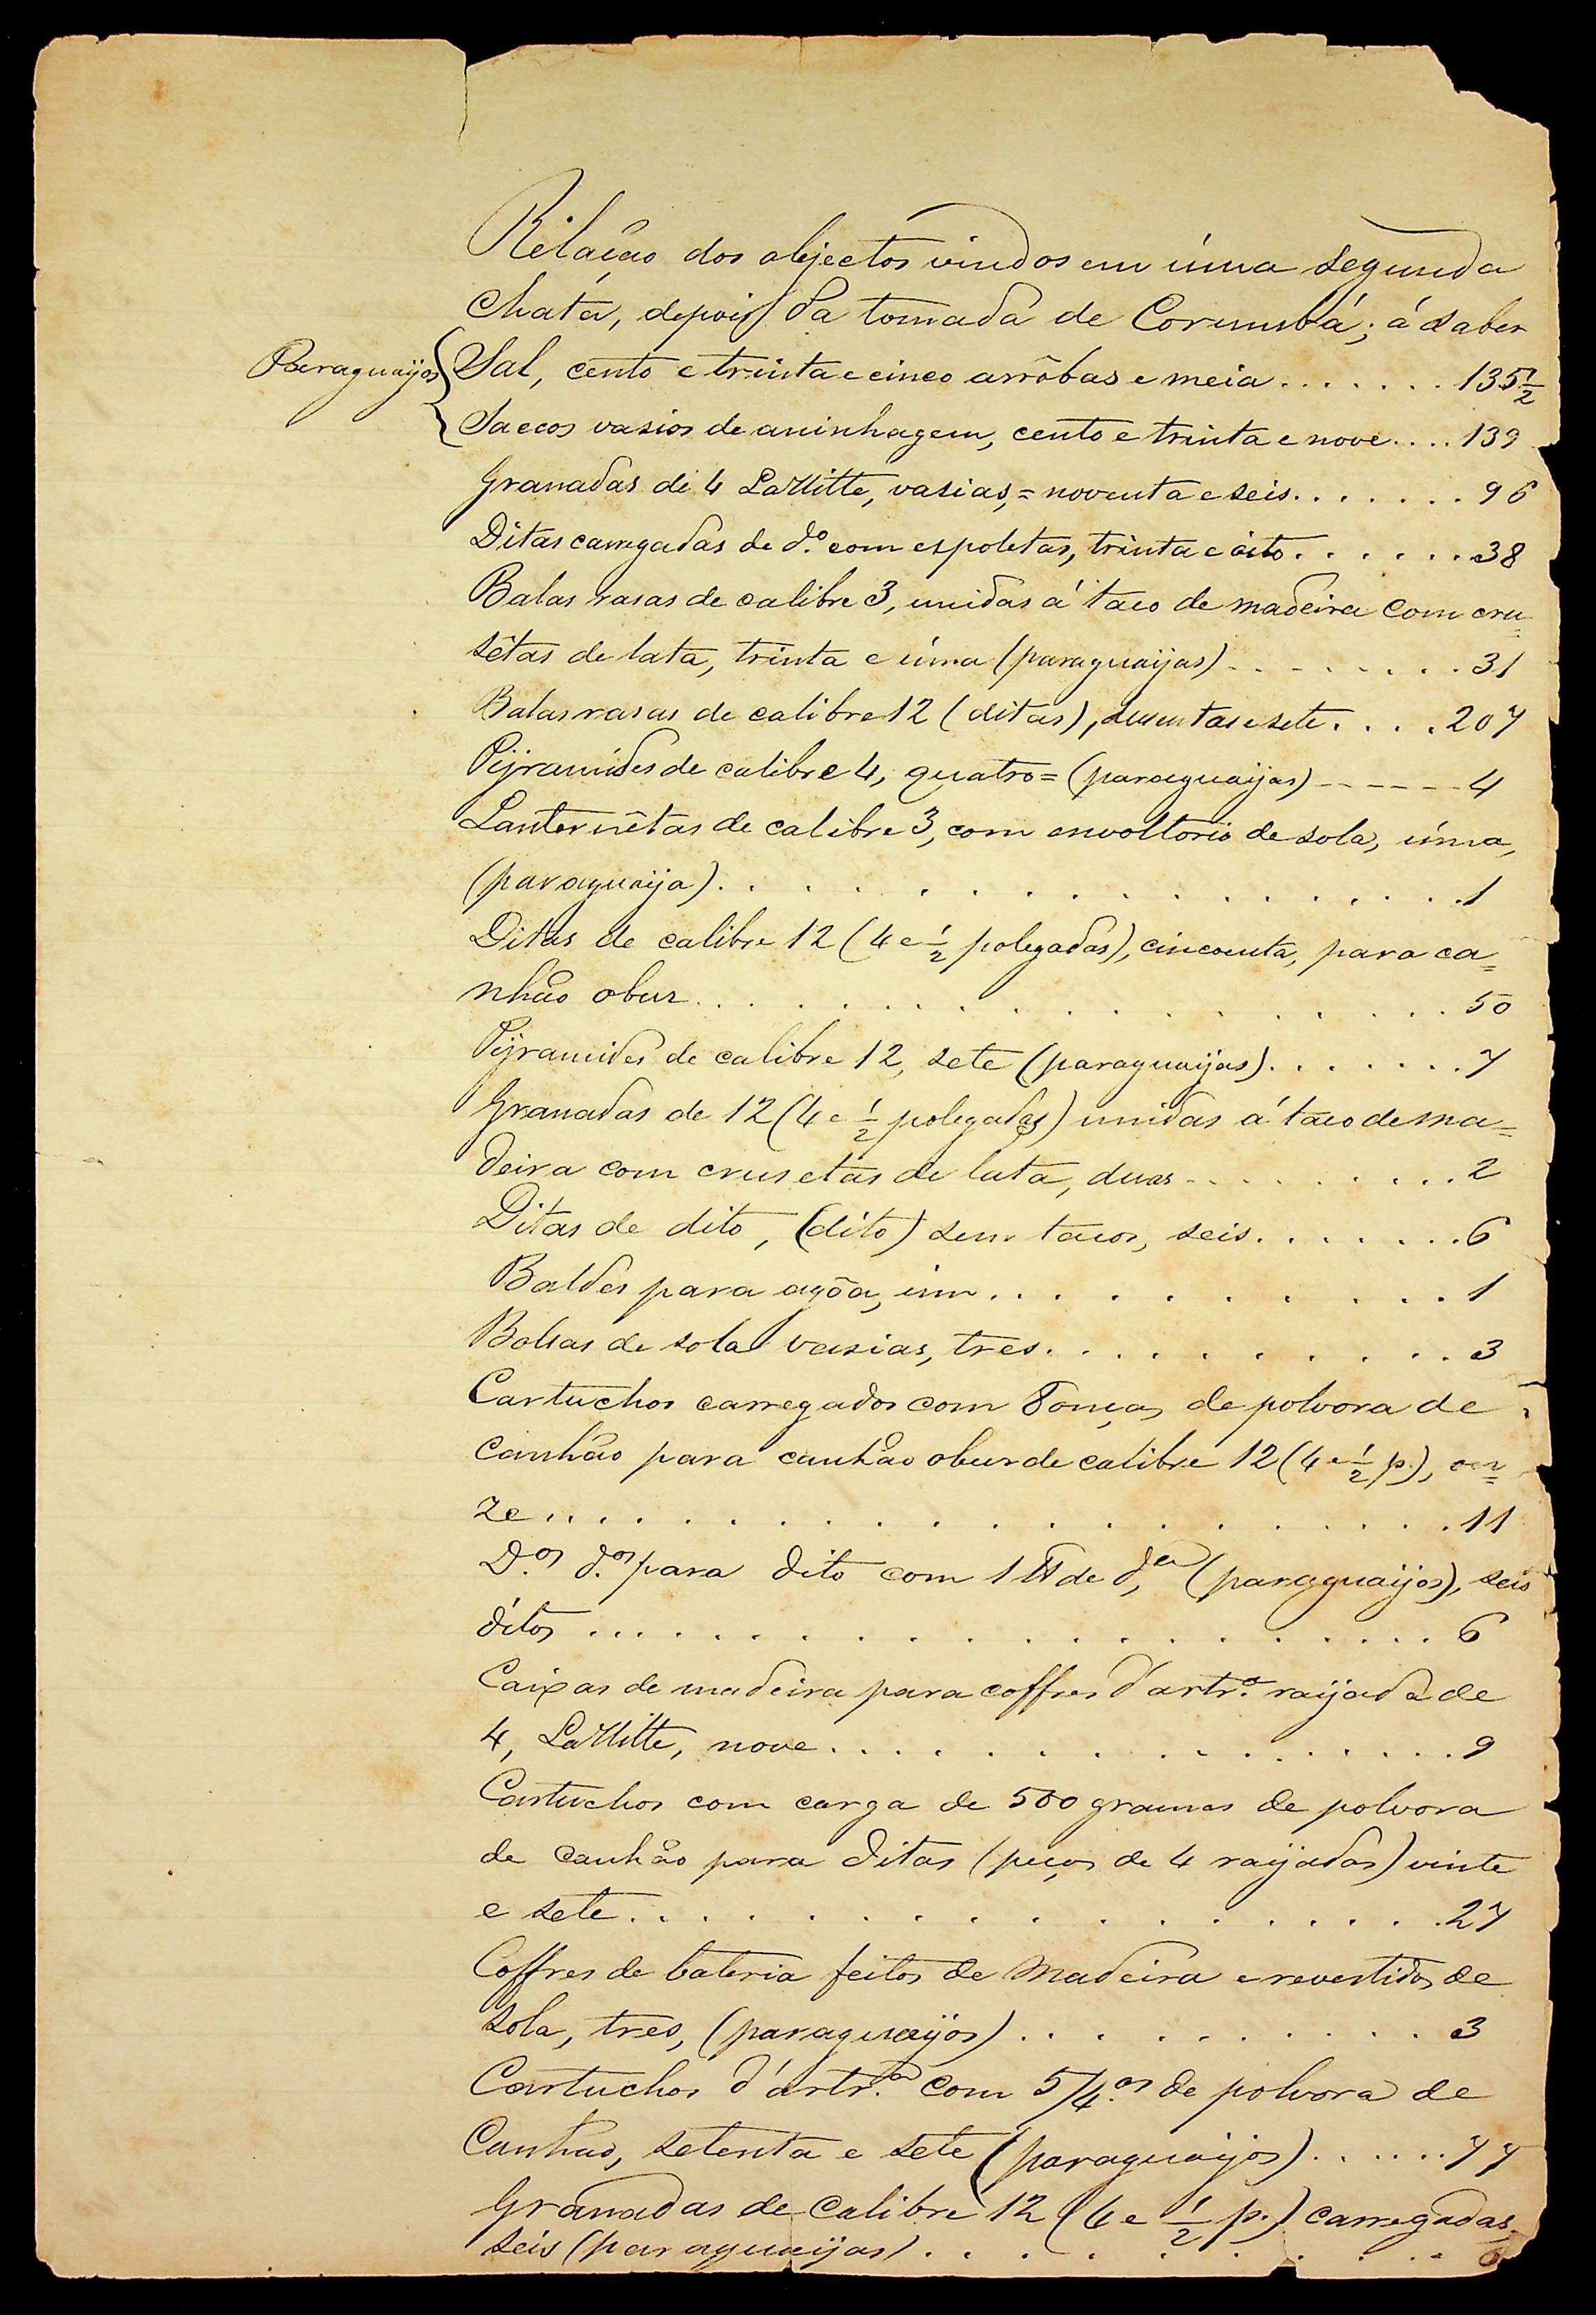 Relação dos objectos vindos em úma segunda
Chata, depois da tomada de Corumbá; á saber
Paraguaijos { Sal, cento e trinta e cinco arrôbas e meia . . . . . . . 135 1/2
Saccos vasios de aninhagem, cento e trinta e nove . . . . 139
Granadas de 4 LaHitte, vasias, = noventa e seis . . . . . . . 96
Ditas carregadas de d.º com espoletas, trinta e oito . . . . . . . 38
Balas rasas de calibre 3, unidas á taco de madeira com cru=
sêtas de lata, trinta e úma (paraguaijas) . . . . . . . . 31
Balas rasas de calibre 12 (ditas), dusentas e sete . . . . 207
Pijramides de calibre 4, quatro = (paraguaijas) - - - - - - 4
Lanternêtas de calibre 3, com envoltorio de sola, úma,
(paraguaija) . . . . . . . . . . . . . . 1
Ditas de calibre 12 (4 e 1/2 polegadas), cincoenta, para ca=
nhão obus . . . . . . . . . . . . . . 50
Pijramides de calibre 12, sete (paraguaijas) . . . . . . . 7
Granadas de 12 (4 e 1/2 polegadas) unidas á taco de ma=
deira com crusetas de lata, duas . . . . . . . . . 2
Ditas de dito, (díto) sem tacos, seis . . . . . . . . 6
Baldes para agôa, úm . . . . . . . . . . . 1
Bolsas de sola vasias, tres . . . . . . . . . . 3
Cartuchos carregados com 8 onças de polvora de
canhão para canhão obus de calibre 12 (4 e 1/2 p.), on=
ze . . . . . . . . . . . . . . . . . 11
D.os d.os para dito com 1 ℔ de d.a (paraguaijos), seis
dítos . . . . . . . . . . . . . . . . 6
Caixas de madeira para coffres d'artr.a raijada de
4, LaHitte, nove . . . . . . . . . . . . . 9
Cartuchos com carga de 500 gramas de polvora
de canhão para ditas (peças de 4 raijadas) vinte
e sete . . . . . . . . . . . . . . . 27
Coffres de bateria feitos de madeira e revestidos de
sola, tres, (paraguaijos) . . . . . . . . . 3
Cartuchos d'artr.a com 5/4.os de polvora de
Canhão, setenta e sete (paraguaijos) . . . . . . 77
Granadas de Calibre 12 (4 e 1/2 p.) carregadas,
seis (paraguaijas) . . . . . . . . . 6